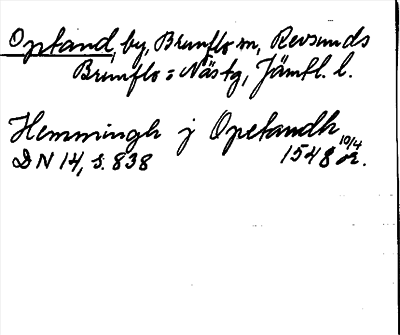 Optand, by, Brunflo sn, Revsunds
Brunflo o Näs tg, Jämtl. l.
Hemmingh j Opetandh
10/4
DN 14, s. 838 1548 or.